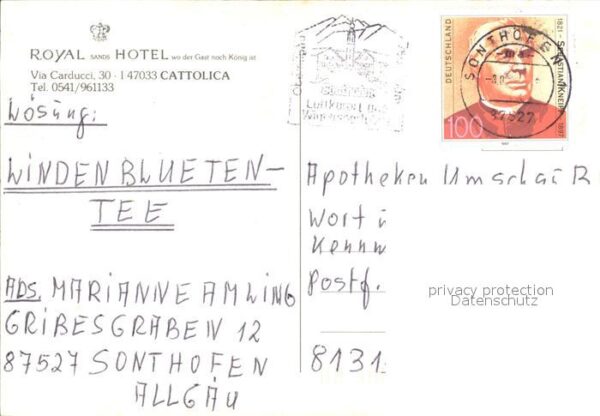 ROYAL SANDS HOTEL wo der Gast noch König ist
Via Carducci, 30 · I 47033 CATTOLICA
Tel. 0541/961133
Lösung:
LINDENBLUETEN-
TEE
ABS. MARIANNE AMLING
GRIBESGRABEN 12
87527 SONTHOFEN
ALLGÄU
Luftkurort und
SONTHOFEN
87527
DEUTSCHLAND
1821 - SEBASTIAN KNEIPP - 1897
100
Apotheken Umschau R
Wort
Kennw
Postf.
8131
privacy protection
Datenschutz